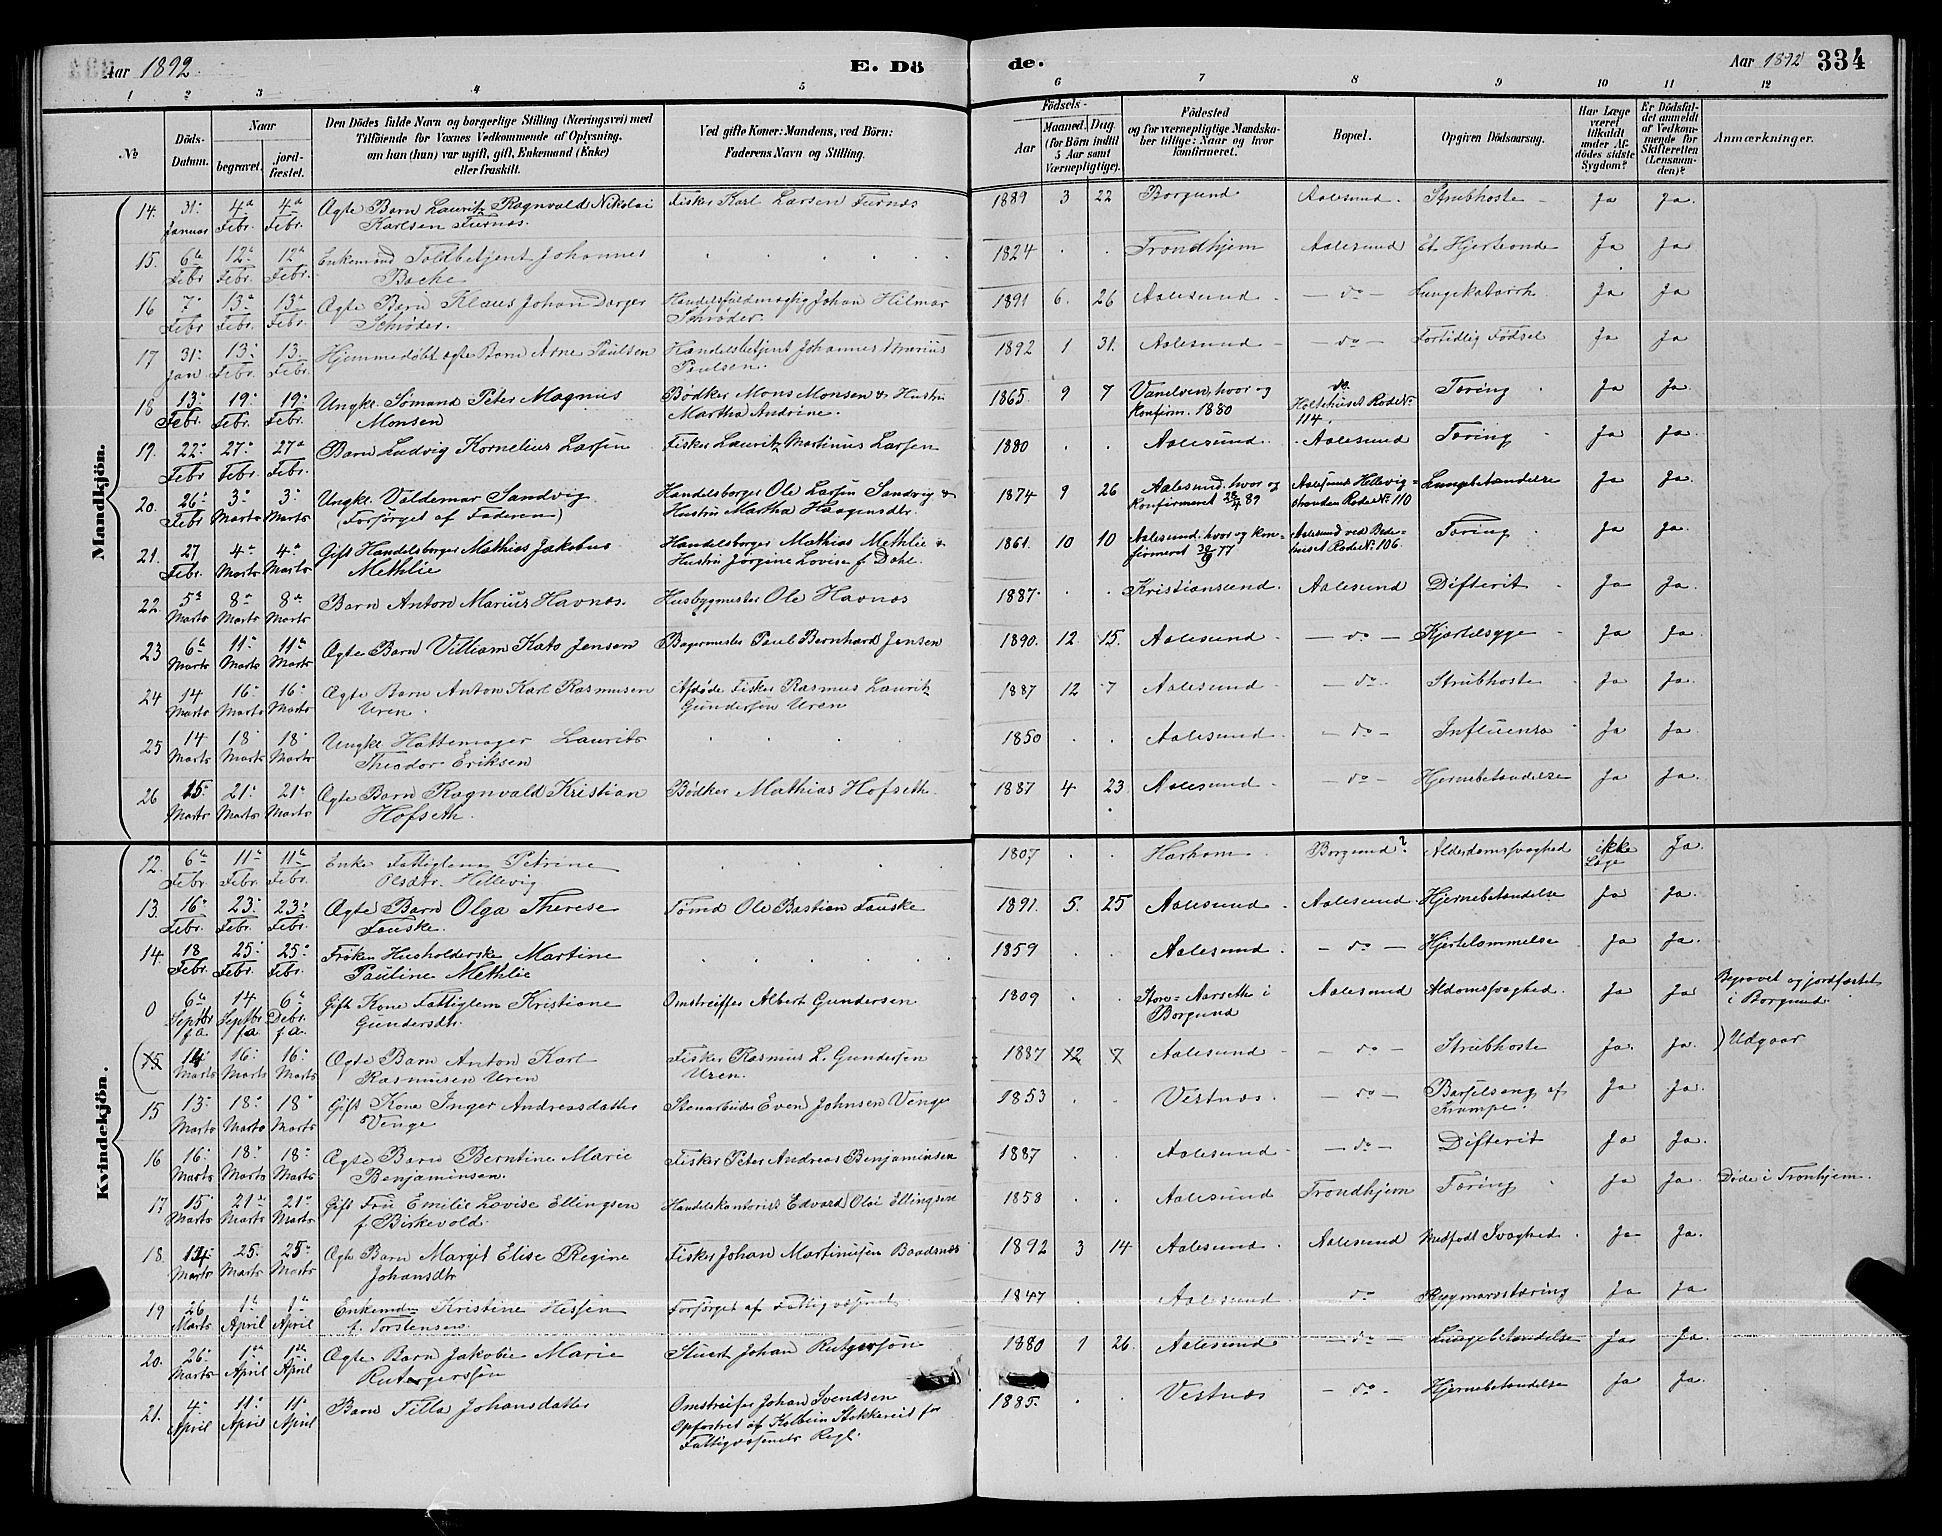 Aar 1892.
E. Dö
de.
Aar 1892
334
1 2 3 4 5 6 7 8 9 10 11 12
No
Döds-Datum.
Naar
begravet. jord-fæstet.
Den Dödes fulde Navn og borgerlige Stilling (Næringsvei) med
Tilföiende for Voxnes Vedkommende af Oplysning,
om han (hun) var ugift, gift, Enkemand (Enke)
eller fraskilt.
Ved gifte Koner: Mandens, ved Börn:
Faderens Navn og Stilling.
Födsels-
Aar
Maaned. Dag.
(for Börn indtil
5 Aar samt
Værnepligtige).
Födested
og for værnepligtige Mandska-
ber tillige: Naar og hvor
konfirmeret.
Bopæl.
Opgiven Dödsaarsag.
Har Læge
været
tilkaldt
under Af-
dödes sidste
Sygdom?
Er Dödsfal-
det anmeldt
af Vedkom-
mende for
Skifteretten
(Lensman-
den)?
Anmærkninger.
Mandkjön.
14. 31. Januar 4de Febr. 4de Febr. Ægte Barn Lauritz Ragnvald Nikolai Fisker Karl Larsen Furnæs 1889 3 22 Borgund Aalesund. Strubhoste Ja Ja.
Karlsen Furnæs.
15. 6te Febr 12te Febr. 12te Febr. Enkemand Toldbetjent Johannes 1824 . . Trondhjem Aalesund Et Hjerteonde Ja Ja
Backe
16 7. Febr 13de Febr. 13de Febr. Ægte Barn Klaus Johan Dorger Handelsfuldmægtig Johan Hilmar 1891 6. 26 Aalesund - do - Lungekatarrh Ja Ja
Schrøder. Schrøder.
17 31. Jan 13. Febr. 13. Febr. Hjemmedøbt ægte Barn Arne Paulsen Handelsbetjent Johannes Marius 1892 1 31. Aalesund - do - Fortidlig Fødsel Ja Ja
Paulsen.
18 13. Febr. 19. Febr. 19. Febr. Ungkl. Sømand Peter Magnus Bødker Mons Monsen & Hustru 1865. 9 7 Vanelven, hvor og do Tæring Ja Ja
Monsen Martha Andrine. konfirm. 1880 Holsehuset Rode No 114.
19. 22. Febr 27. Febr. 27de Febr. Barn Ludvig Kornelius Larsen Fisker Lauritz Martinus Larsen 1880 . . Aalesund. Aalesund Tæring Ja Ja.
20. 26. Febr 3. Marts 3. Marts Ungkl. Valdemar Sandvig Handelsborger Ole Larsen Sandvig & 1874 9 26 Aalesund. hvor og Aalesund Hellevig= Lungebetændelse Ja Ja.
(Forsørget af Faderen) Hustru Martha Haagensdtr. konfirmeret 28/4 89 stranden Rode No 110
21. 27 Febr. 4de Marts 4de Marts Gift Handelsborger Mathias Jakobus Handelsborger Mathias Methlie & 1861. 10 10 Aalesund. hvor og kon= Aalesund ved Bede= Tæring Ja Ja.
Methlie Hustru Jørgine Lovise f. Dahl. firmeret 30/9 77 huset Rode No 106.
22. 5te Marts 8de Marts 8de Marts Barn Anton Marius Havnæs. Husbygmester Ole Havnæs 1887. . . Kristiansund Aalesund Difterit Ja Ja
23 6te Marts 11. Marts 11te Marts Ægte Barn Villiam Kato Jensen Bagermester Paul Bernhard Jensen 1890. 12. 15. Aalesund. - do - Kjertelsyge Ja Ja.
24 14 Marts 16. Marts 16. Marts Ægte Barn Anton Karl Rasmusen Afdøde Fisker Rasmus Lauritz 1887 12 7 Aalesund - do - Strubhoste Ja Ja.
Uren. Gundersen Uren
25 14 Marts 18. Marts 18. Marts Ungkl Hattemager Laurits 1850 . . Aalesund. - do - Influensa Ja Ja
Theodor Eriksen
26 15 Marts 21. Marts 21de Marts Ægte Barn Ragnvald Kristian Bødker Mathias Hofseth. 1887 4 23 Aalesund. - do - Hjernebetændelse Ja Ja
Hofseth.
Kvindekjön.
12. 6te Febr. 11te Febr. 11te Febr. Enke Fattiglem Petrine 1807 . . Harham. Borgund? Alderdomssvaghed ikke Læge Ja.
Olsdtr. Hellevig
13. 16. Febr. 23. Febr. 23. Febr. Ægte Barn Olga Therese Tømd Ole Bastian Fauske 1891. 5. 25 Aalesund. Aalesund Hjernebetændelse Ja Ja.
Fauske.
14. 18 Febr. 25. Febr. 25. Febr. Frøken Husholderske Martine 1859 . . Aalesund. - do - Hjertelammelse Ja Ja.
Pauline Methlie
0 6te Septbr f.a. 14 Septbr f.a. 6te Debr. f.a. Gift Kone Fattiglem Kristiane Omstreiffer Albert Gundersen 1809 . . Store=Aarseth i Aalesund Aldomssvaghed. Ja Ja Begravet og jordfæstet
Gundersdtr. Borgund i Borgund.
(15 14 Marts 16. Marts 16. Marts Ægte Barn Anton Karl Fisker Rasmus L. Gundersen 1887 12 7 Aalesund - do - Strubhoste Ja. Ja. ) Udgaar
Rasmusen Uren Uren.
15 13. Marts 18. Marts 18. Marts Gift Kone Inger Andreasdatter Stenarbeider Even Johnsen Venge 1853 . . Vestnæs. - do - Barselseng af Ja Ja.
Venge Krampe.
16 16. Marts 18. Marts 18. Marts Ægte Barn Berntine Marie Fisker Peter Andreas Benjaminsen 1887 . . Aalesund - do - Difterit Ja Ja.
Benjaminsen.
17 15 Marts 21de Marts 21de Marts Gift Fru Emilie Lovise Ellingsen Handelskontorist Edvard Olai Ellingsen 1858 . . Aalesund Trondhjem Tæring Ja Ja. Døde i Tronhjem.
f. Birkevold.
18. 14 Marts 25. Marts 25. Marts Ægte Barn Margit Elise Regine Fisker Johan Martinusen Baadsnæs 1892 3 14 Aalesund. Aalesund Medfødt Svaghed. Ja Ja.
Johansdtr
19 26 Marts 1te April 1te April Enkemdn Kristine Hessen Forsørget af Fattigvæsenet 1847 . Aalesund. do Rygmarvstæring Ja Ja
f. Torstensen
20. 26. Marts 1ste April 1ste April Ægte Barn Jakobie Marie Stuert Johan Rutgersøn 1880 1 26. Aalesund - do - Lungebetændelse Ja Ja.
Rutgerssøn
21. 4. April 11. April 11. April Barn Tilla Johansdatter Omstreifer Johan Svendsen 1885. . . Vestnæs - do - Hjernebetændelse Ja Ja.
Opfostret af Kolbein Stokkereit for
Fattigvæsenets Regl.